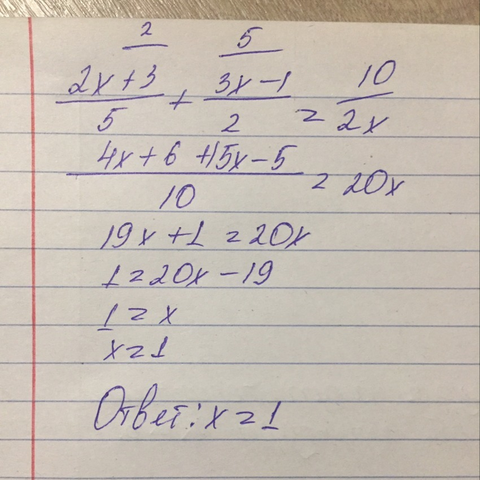 2 5
2x+3/5 + 3x-1/2 = 10/2x
4x+6+15x-5/10 = 20x
19x+1=20x
1=20x-19
1=x
x=1
Ответ: x=1